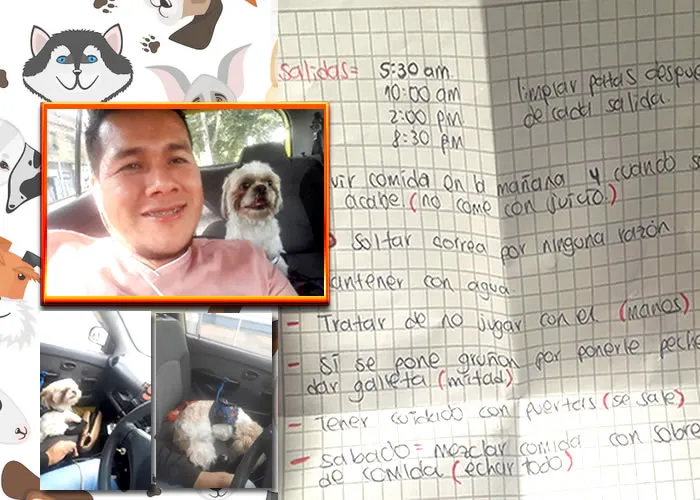 salidas= 5:30 am
10:00 am
2:00 pm
8:30 pm
limpiar patas despu
de cada salida.
vir comida en la mañana y cuando s
acabe (no come con juicio)
soltar correa por ninguna razón
antener con agua.
- Tratar de no jugar con el (manos)
- Si se pone gruñon por ponerle peche
dar galleta (mitad)
- Tener cuidado con puertas (se sale)
- sabado = mezclar comida con sobre
de comida (echar todo)